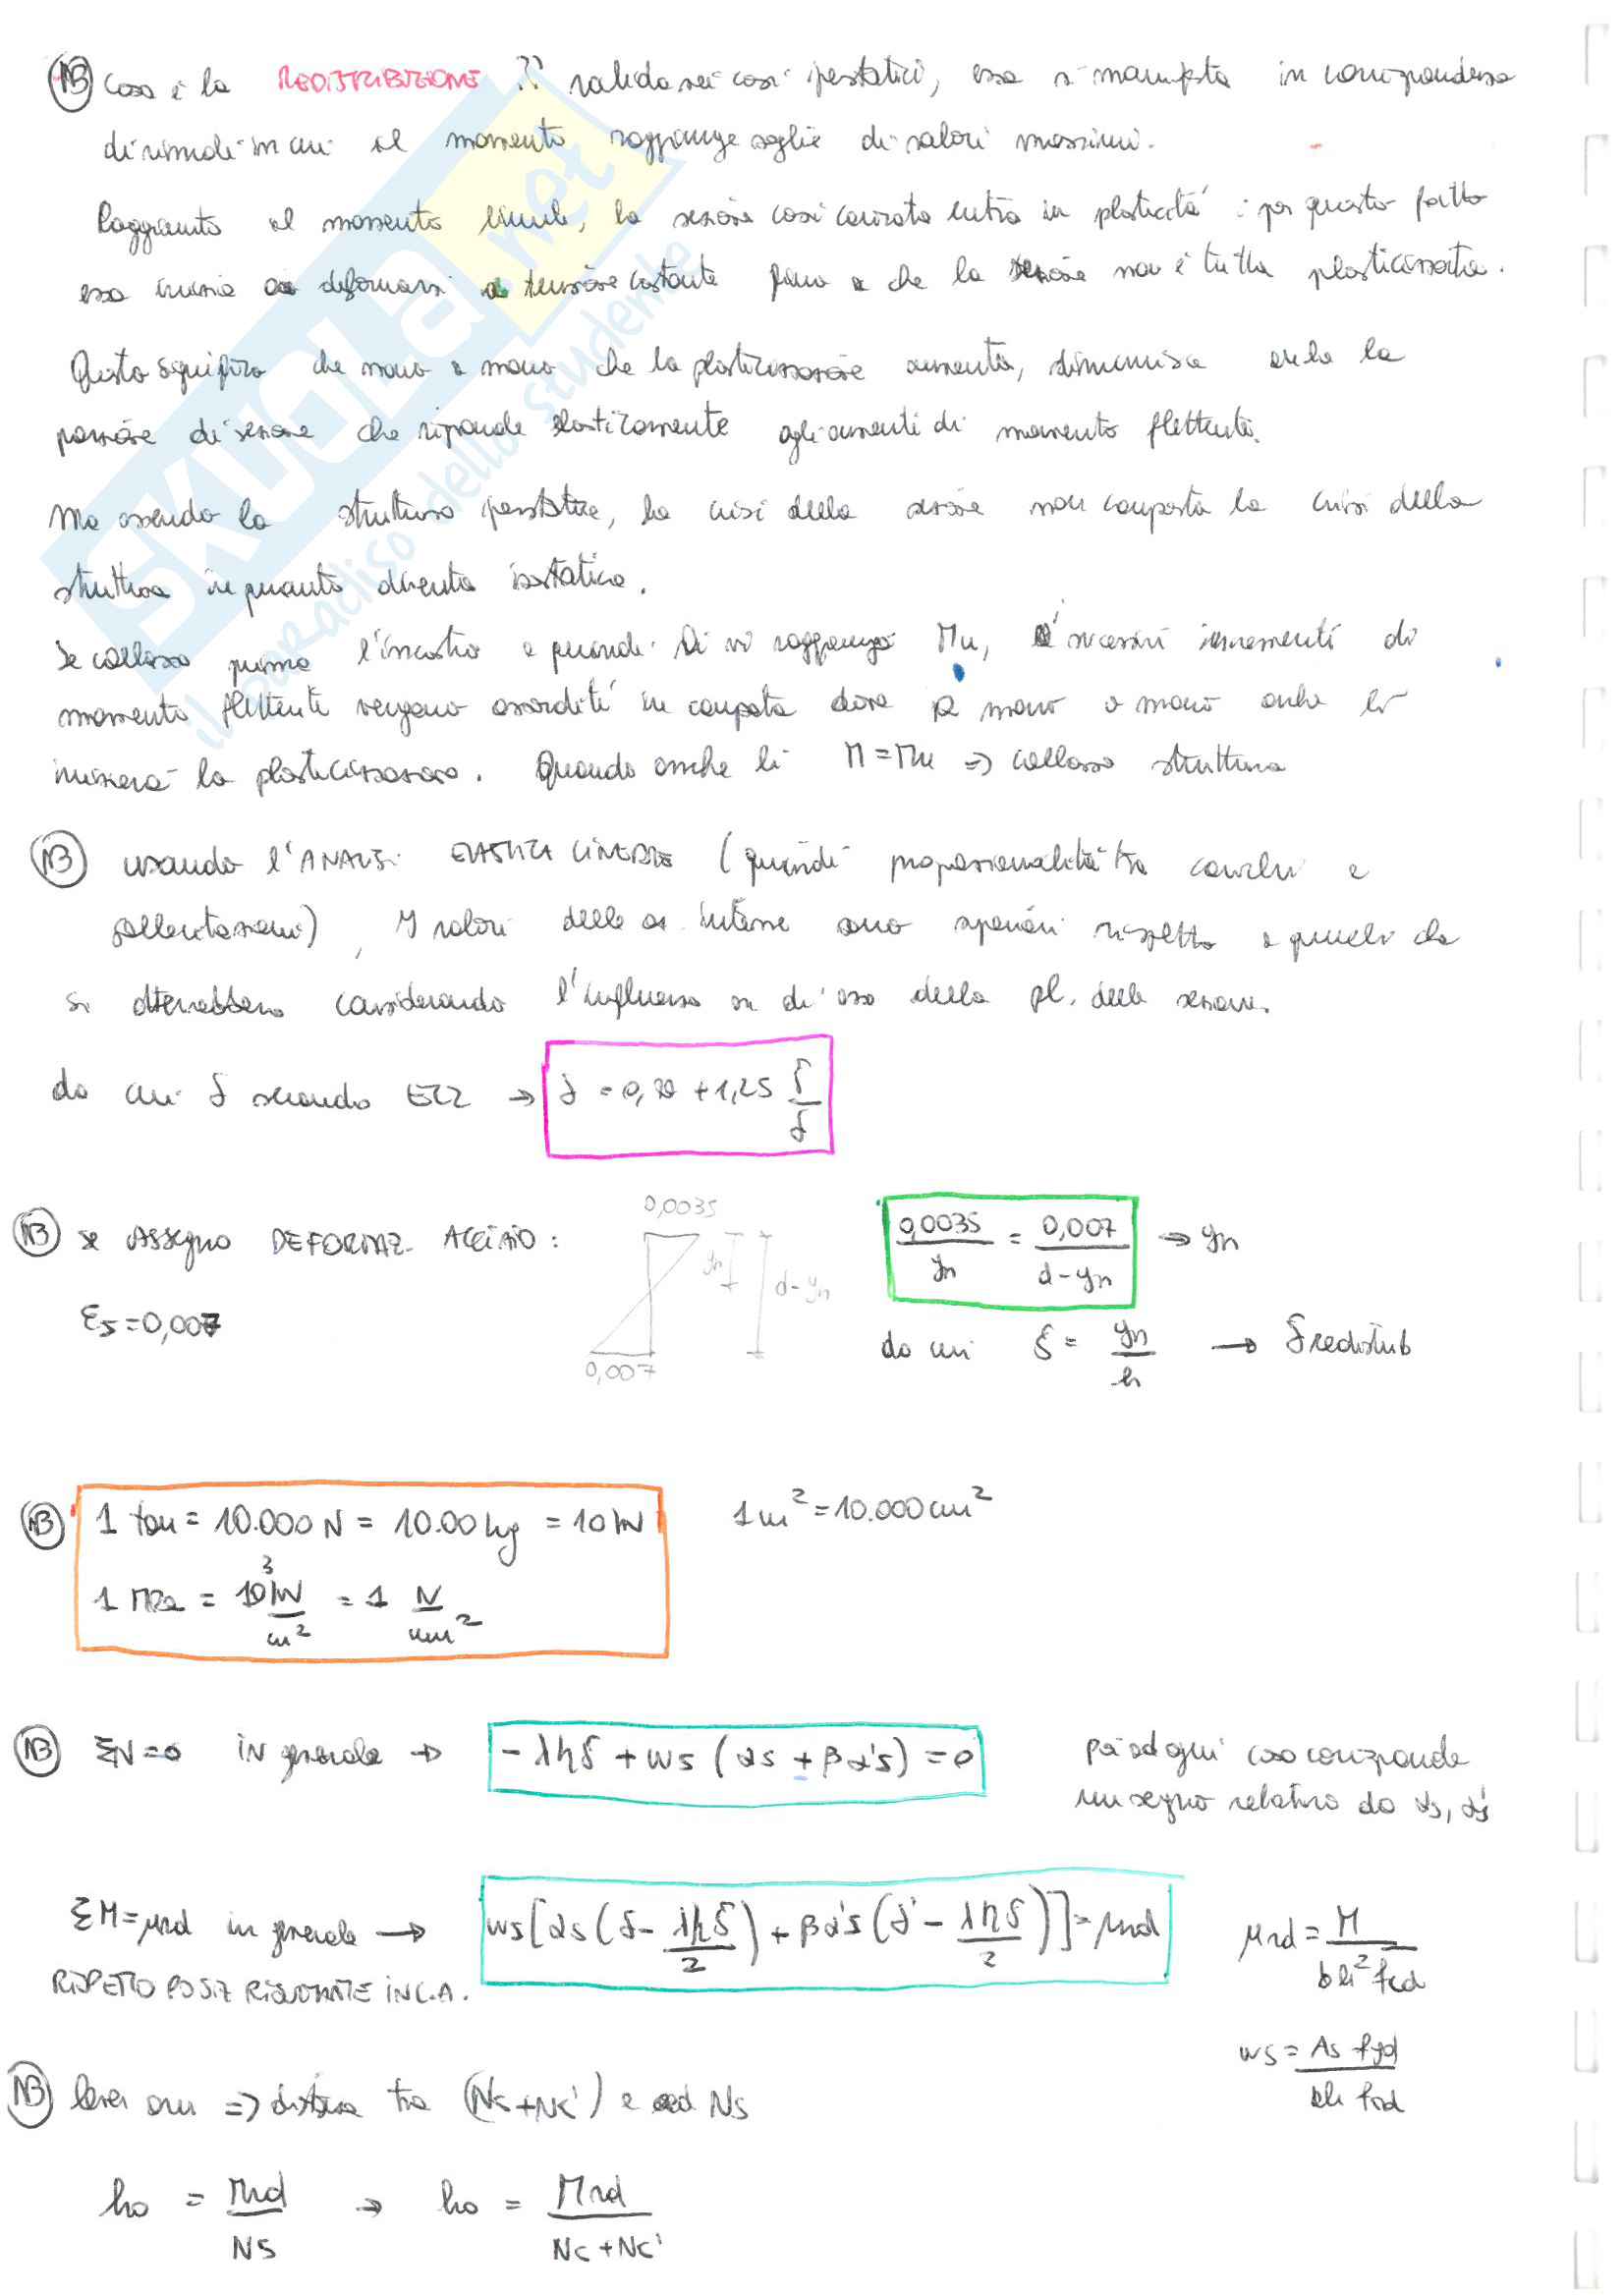 NB cosa è la REDISTRIBUZIONE ?? valida nei casi iperstatici, essa si manifesta in corrispondenza
di vincoli in cui il momento raggiunge soglie di valori massimi.
Raggiunto il momento limite, la sezione così caricata entra in plasticità: per questo fatto
essa inizia a deformarsi a tensione costante fino a che la sezione non è tutta plasticizzata.
Questo significa che mano a mano che la plasticizzazione aumenta, diminuisce anche la
porzione di sezione che risponde elasticamente agli aumenti di momento flettente.
Ma essendo la struttura iperstatica, la crisi della sezione non comporta la crisi della
struttura in quanto diventa isostatica.
Se collassa prima l'incastro e quindi lì si raggiunge Mu, i successivi incrementi di
momento flettente vengono assorbiti in campata dove a mano a mano anche lì
inizierà la plasticizzazione. Quando anche lì M=Mu => collasso struttura
NB usando l'ANALISI ELASTICA LINEARE (quindi proporzionalità tra carichi e
sollecitazioni), I valori delle az. interne sono superiori rispetto a quelli che
si otterrebbero considerando l'influenza su di esse della pl. delle sezioni.
da cui δ secondo EC2 → δ = 0,44 + 1,25 ξ/δ
NB se ASSEGNO DEFORMAZ. ACCIAIO:
εs=0,007
0,0035
yn
d-yn
0,007
0,0035/yn = 0,007/d-yn → yn
da cui ξ = yn/h → δ redistrib
NB 1 ton = 10.000 N = 10.00 kg = 10 kN
1 m² = 10.000 cm²
1 MPa = 10³ kN/m² = 1 N/mm²
NB ΣN=0 in generale → -ληξ + ws (αs + βα's) = 0
poi ad ogni caso corrisponde
un segno relativo da αs, α's
ΣM=μrd in generale → ws[αs(δ - ληξ/2) + βα's(δ' - ληξ/2)] = μrd
RISPETTO POSIZ RISULTANTE IN C.A.
μrd = M/bh²fcd
ws = As fyd/bh fcd
NB leva => distanza tra (Nc+Nc') e Ns
ho = Mrd/Ns → ho = Mrd/Nc+Nc'
SKUOLA.net
il paradiso dello studente